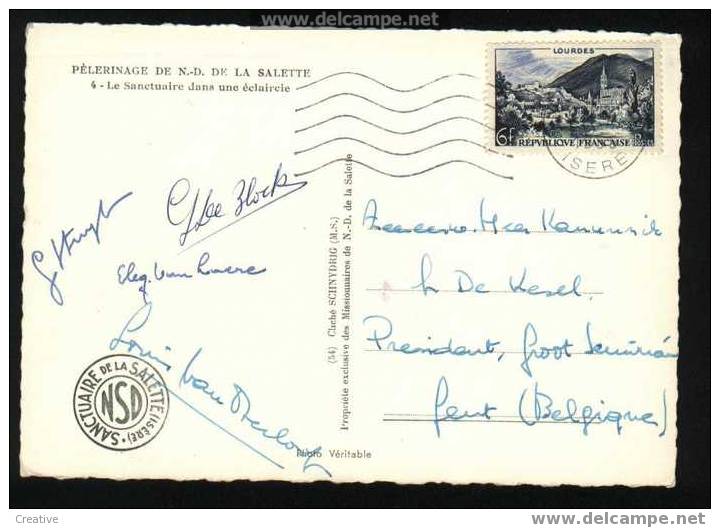 www.delcampe.net
PÈLERINAGE DE N.-D. DE LA SALETTE
4 - Le Sanctuaire dans une éclaircie
LOURDES
6F RÉPUBLIQUE FRANÇAISE
ISÈRE
G De Block
Van
Louis Van
SANCTUAIRE DE LA SALETTE (ISÈRE)
NSD
(54) Cliché SCHNYDRIG (M.S.)
Propriété exclusive des Missionnaires de N.-D. de la Salette
Photo Véritable
Heer Kanunnik
De Kesel.
President, Groot Seminarie
Gent (Belgique)
Creative
www.delcampe.net